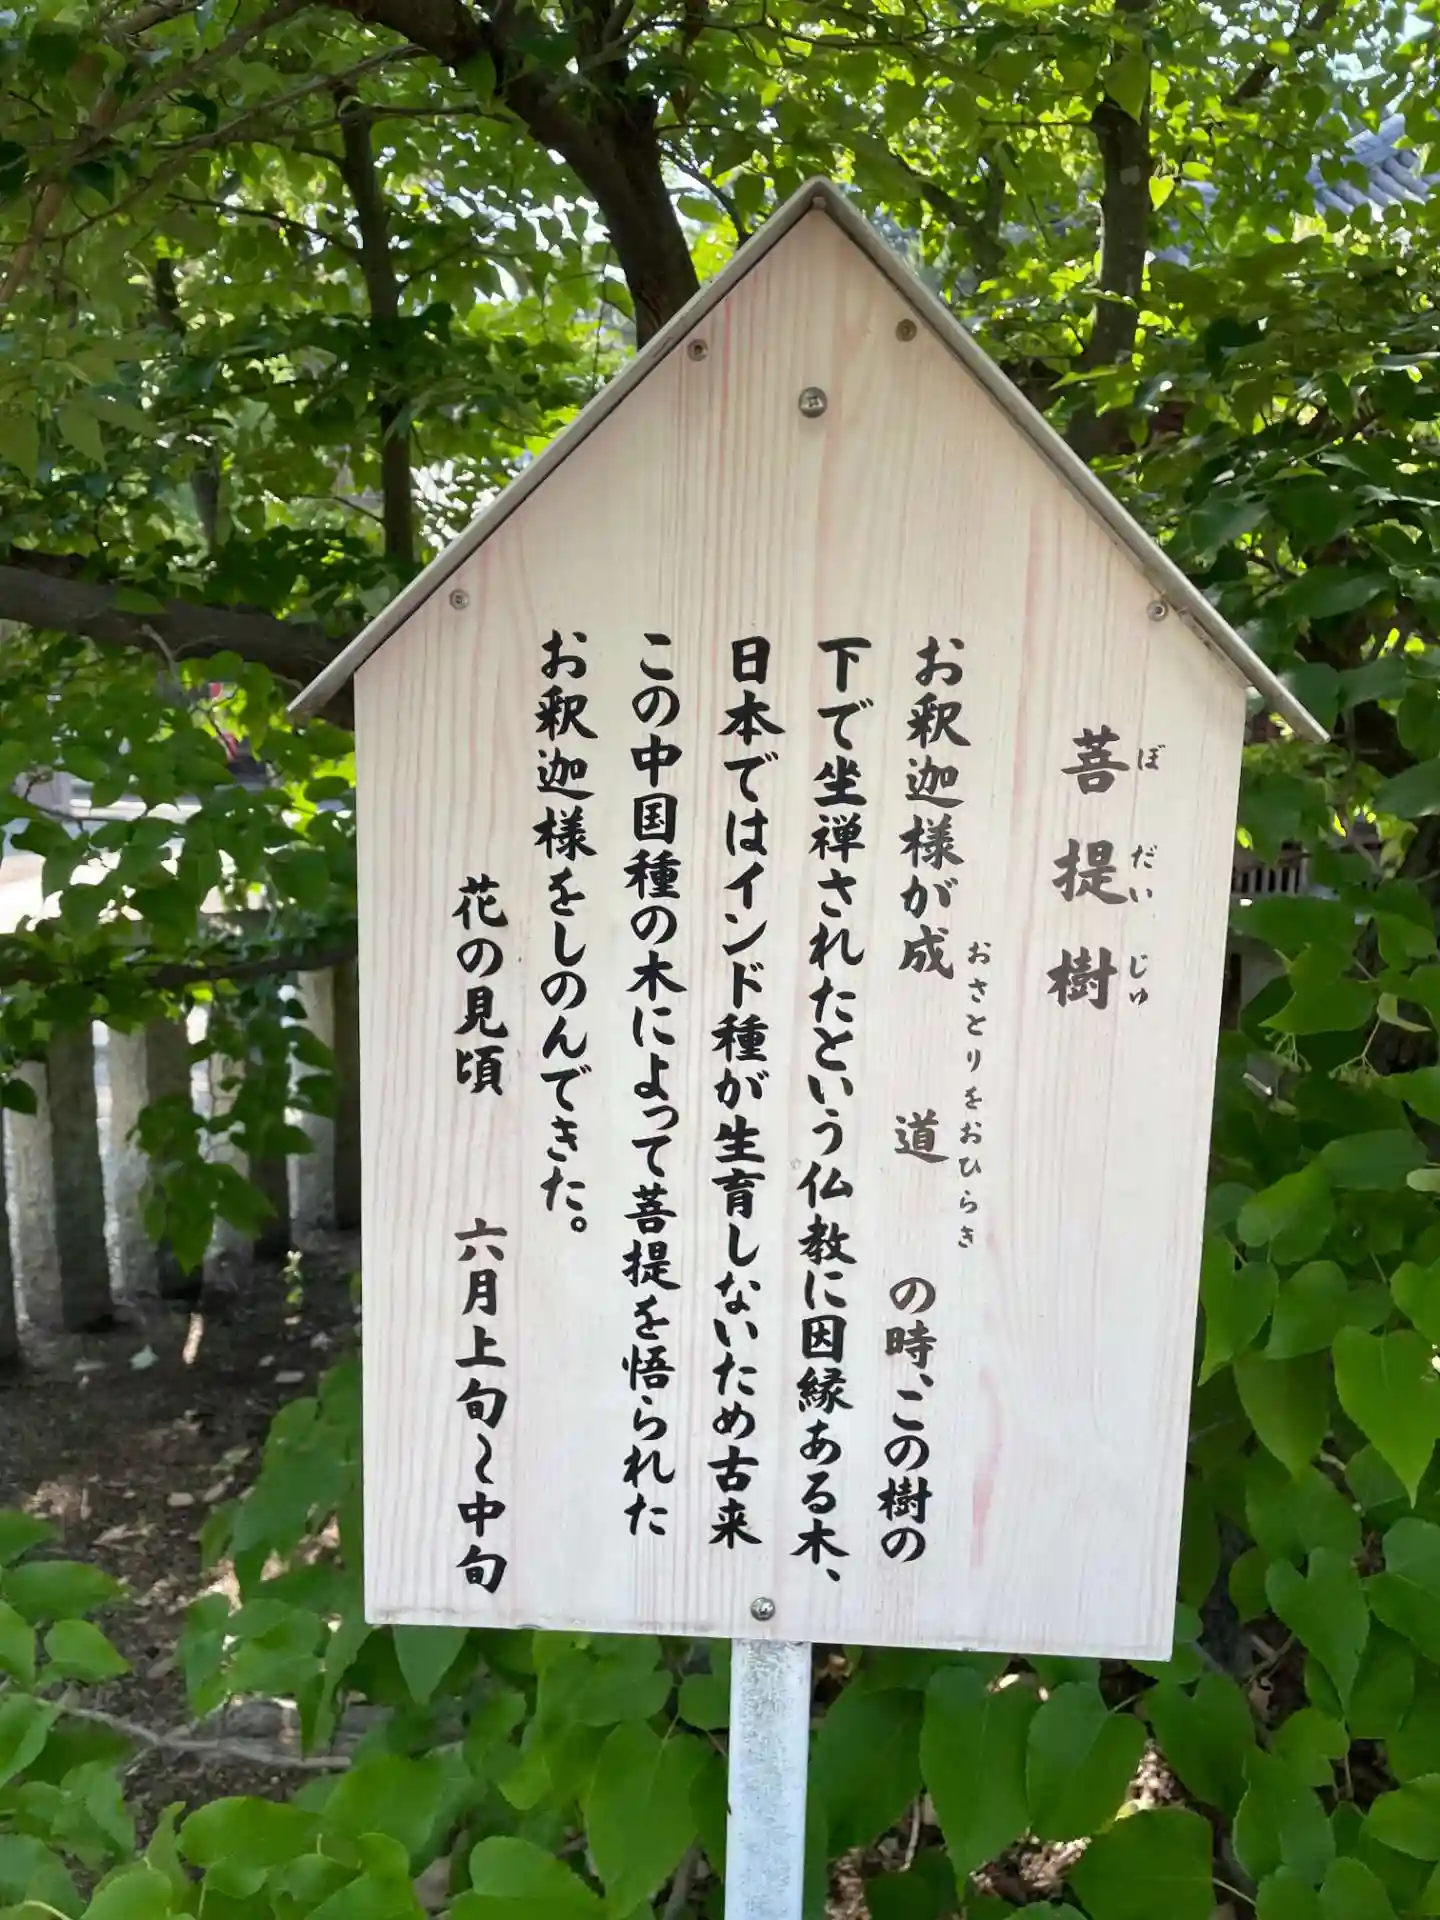 菩提樹
ぼだいじゅ
お釈迦様が成道の時、この樹の
おさとりをおひらき
下で坐禅されたという仏教に因縁ある木、
日本ではインド種が生育しないため古来
この中国種の木によって菩提を悟られた
お釈迦様をしのんできた。
花の見頃 六月上旬~中旬